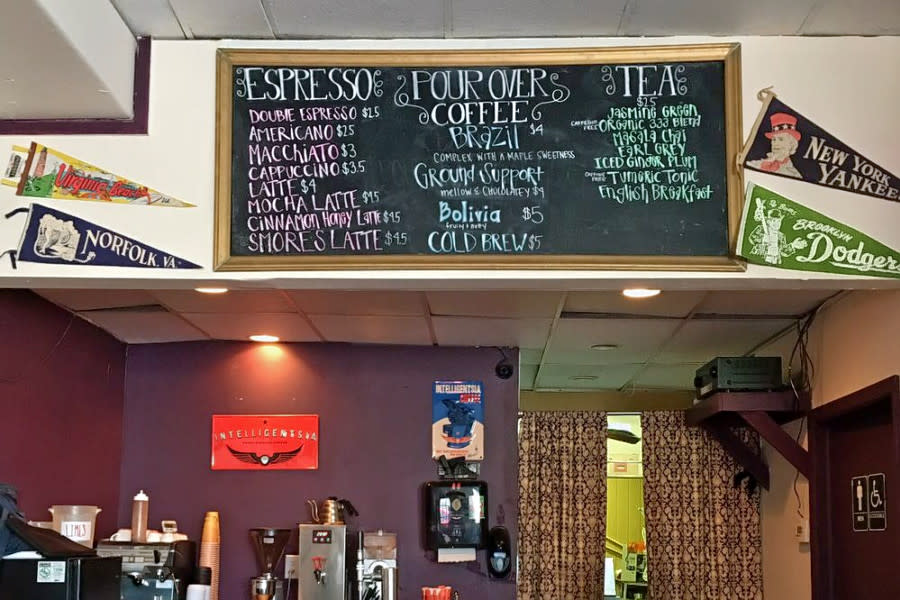 ESPRESSO
DOUBLE ESPRESSO $2.5
AMERICANO $2.5
MACCHIATO $3
CAPPUCCINO $3.5
LATTE $4
MOCHA LATTE $4.5
CINNAMON HONEY LATTE $4.5
SMORE'S LATTE $4.5
POUR OVER
COFFEE
BRAZIL $4
COMPLEX WITH A MAPLE SWEETNESS
GROUND SUPPORT
MELLOW & CHOCOLATEY $4
BOLIVIA $5
COLD BREW $5
TEA
$2.5
JASMINE GREEN
CAFFEINE FREE ORGANIC 333 BLEND
MASALA CHAI
EARL GREY
ICED GINGER PLUM
CAFFEINE FREE TUMERIC TONIC
ENGLISH BREAKFAST
Virginia Beach
NORFOLK, VA.
NEW YORK
YANKEES
BROOKLYN
Dodgers
INTELLIGENTSIA
INTELLIGENTSIA
COFFEE
LIMES
MEN
ACCESSIBLE